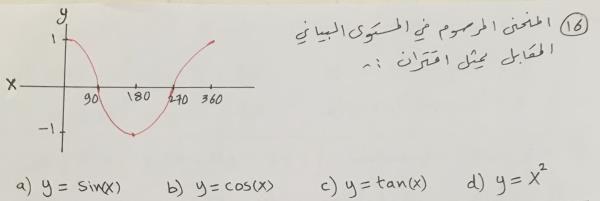 (16) المنحنى المرسوم في المستوى البياني
المقابل يمثل اقتران :~
y
1
X
90 180 270 360
-1
a) y = sin(x) b) y = cos(x) c) y = tan(x) d) y = x²